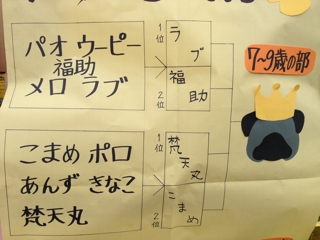 パオ ウーピー
福助
メロ ラブ
1位
ラブ
2位
福助
7~9歳の部
こまめ ポロ
あんず きなこ
梵天丸
1位
梵天丸
2位
こまめ